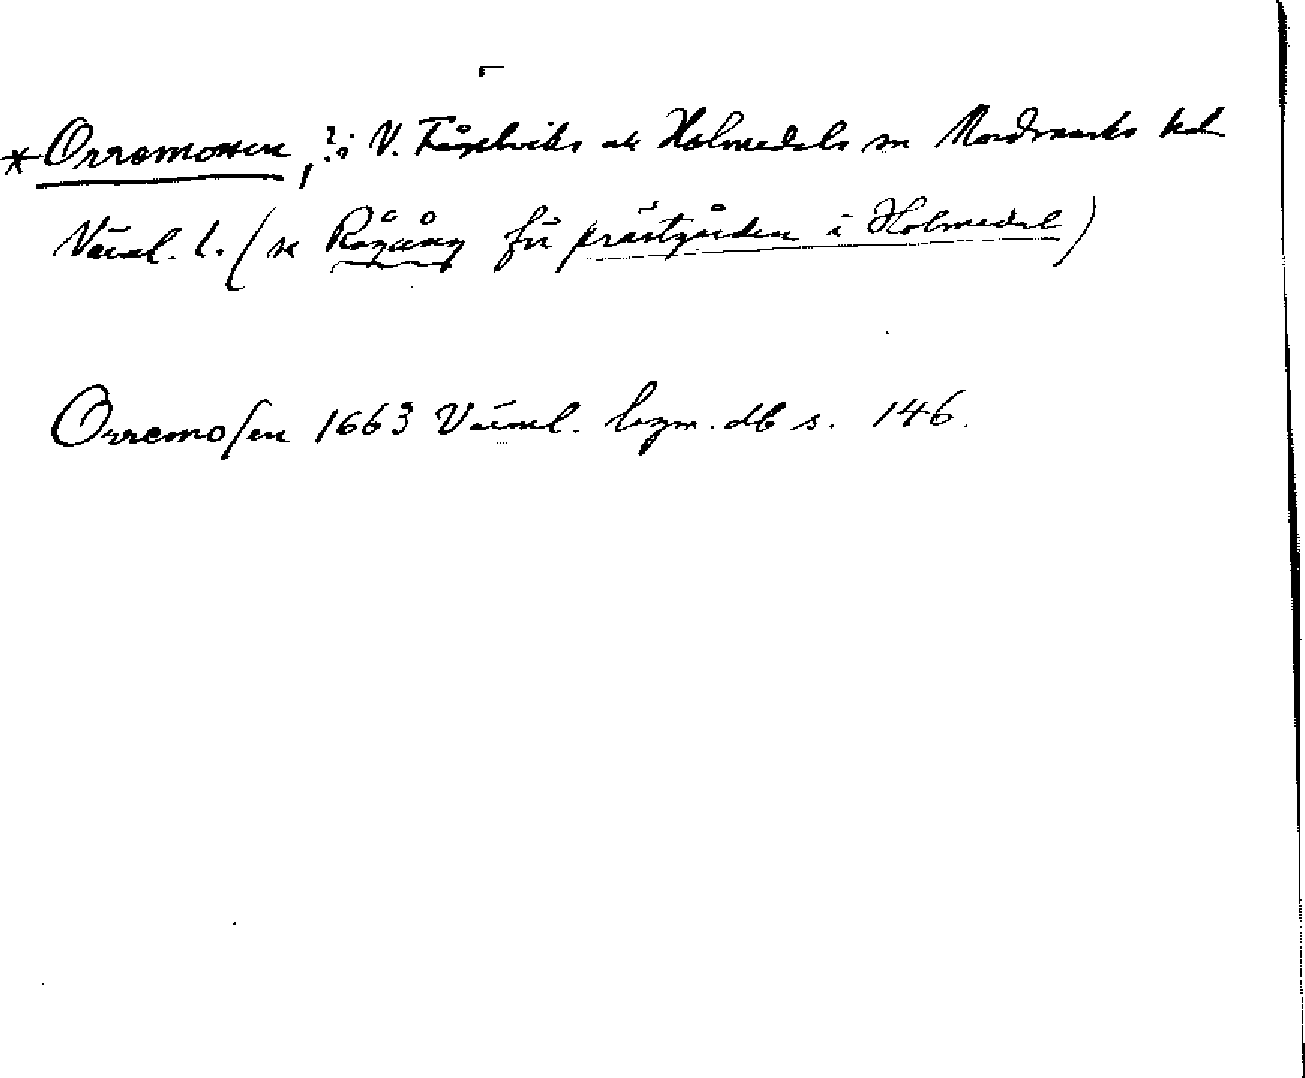 *Orremossen, ? i V. Fågelviks el. Holmedals sn Nordmarks hd
Värml. l. (se Rågång för prästgården i Holmedal)
Orremoſen 1663 Värml. lagm. db s. 146.